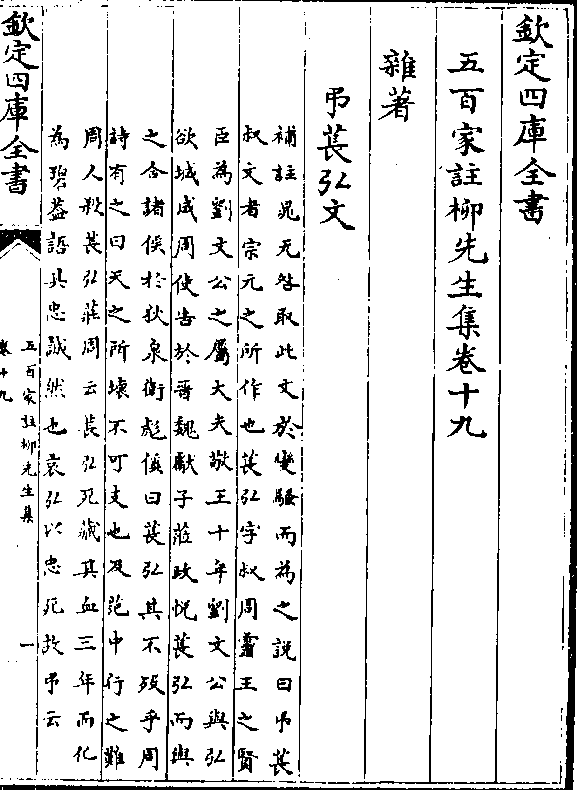 欽定四庫全書
五百家註柳先生集卷十九
雜著
弔萇弘文
補註晁无咎取此文於變騷而為之說曰弔萇
叔文者宗元之所作也萇弘字叔周靈王之賢
臣為劉文公之屬大夫敬王十年劉文公與弘
欲城成周使告於晋魏獻子蒞政悅萇弘而與
之合諸侯於狄泉衛彪傒曰萇弘其不歿乎周
詩有之曰天之所壞不可支也及范中行之難
周人殺萇弘莊周云萇弘死藏其血三年而化
為碧蓋語其忠誠然也哀弘以忠死故弔云
欽定四庫全書
五百家註柳先生集
卷十九
一